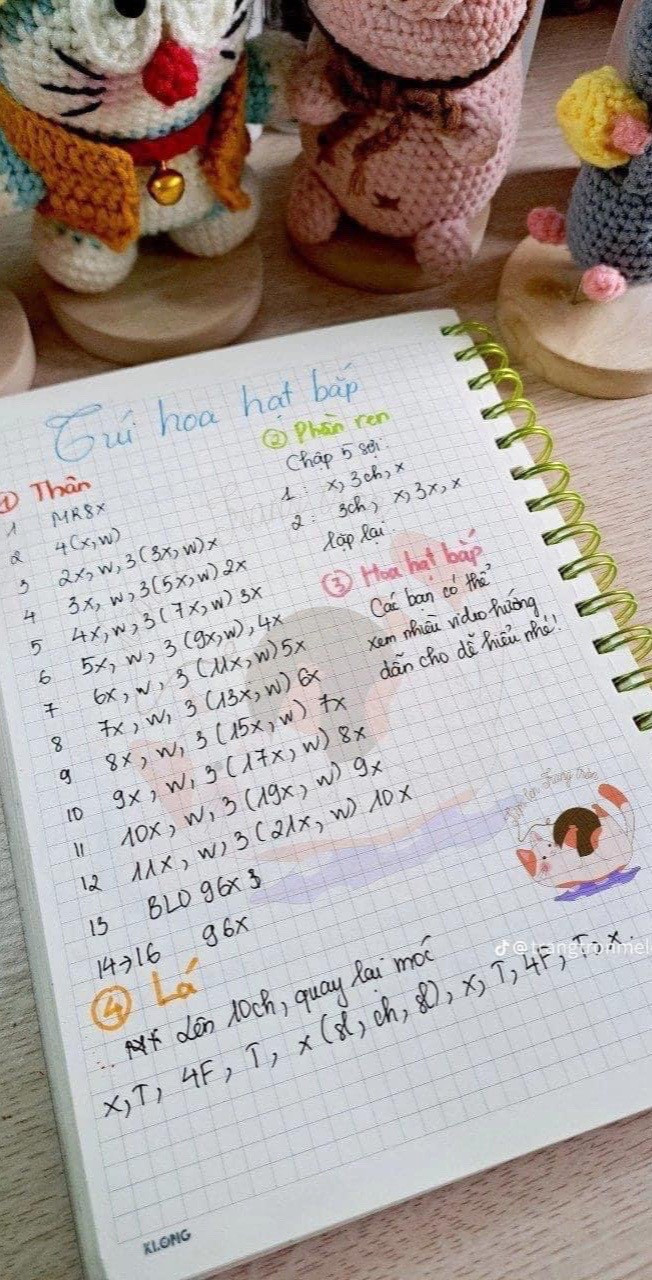 Túi hoa hạt bắp
① Thân
1 MR8X
2 4(x,w)
3 2x, w, 3(3x, w) x
4 3x, w, 3(5x, w) 2x
5 4x, w, 3(7x, w) 3x
6 5x, w, 3(9x, w), 4x
7 6x, w, 3(11x, w) 5x
8 7x, w, 3(13x, w) 6x
9 8x, w, 3(15x, w) 7x
10 9x, w, 3(17x, w) 8x
11 10x, w, 3(19x, w) 9x
12 11x, w, 3(21x, w) 10x
13 BLO 96x 3
14→16 96x
② Phần ren
Chập 5 sợi
1: x, 3ch, x
2: 3ch, x, 3x, x
lặp lại
③ Hoa hạt bắp
Các bạn có thể
xem nhiều video hướng
dẫn cho dễ hiểu nhé!
④ Lá
Lên 10ch, quay lại móc
x, T, 4F, T, x (sl, ch, sl), x, T, 4F, T, x.
@trangtronmel
KLONG